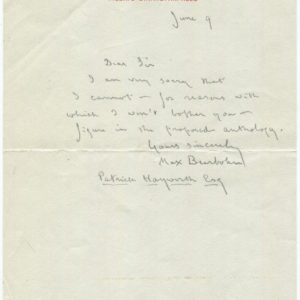 June 9
Dear Sir
I am very sorry that
I cannot — for reasons with
which I won't bother you —
figure in the proposed anthology.
Yours sincerely
Max Beerbohm
Patrick Hayworth Esq